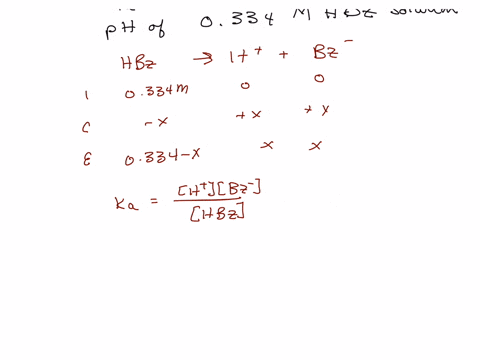 pH of 0.334 M HBz solution
HBz → H⁺ + Bz⁻
I 0.334 m 0 0
C -x +x +x
E 0.334-x x x
Ka = [H⁺][Bz⁻] / [HBz]